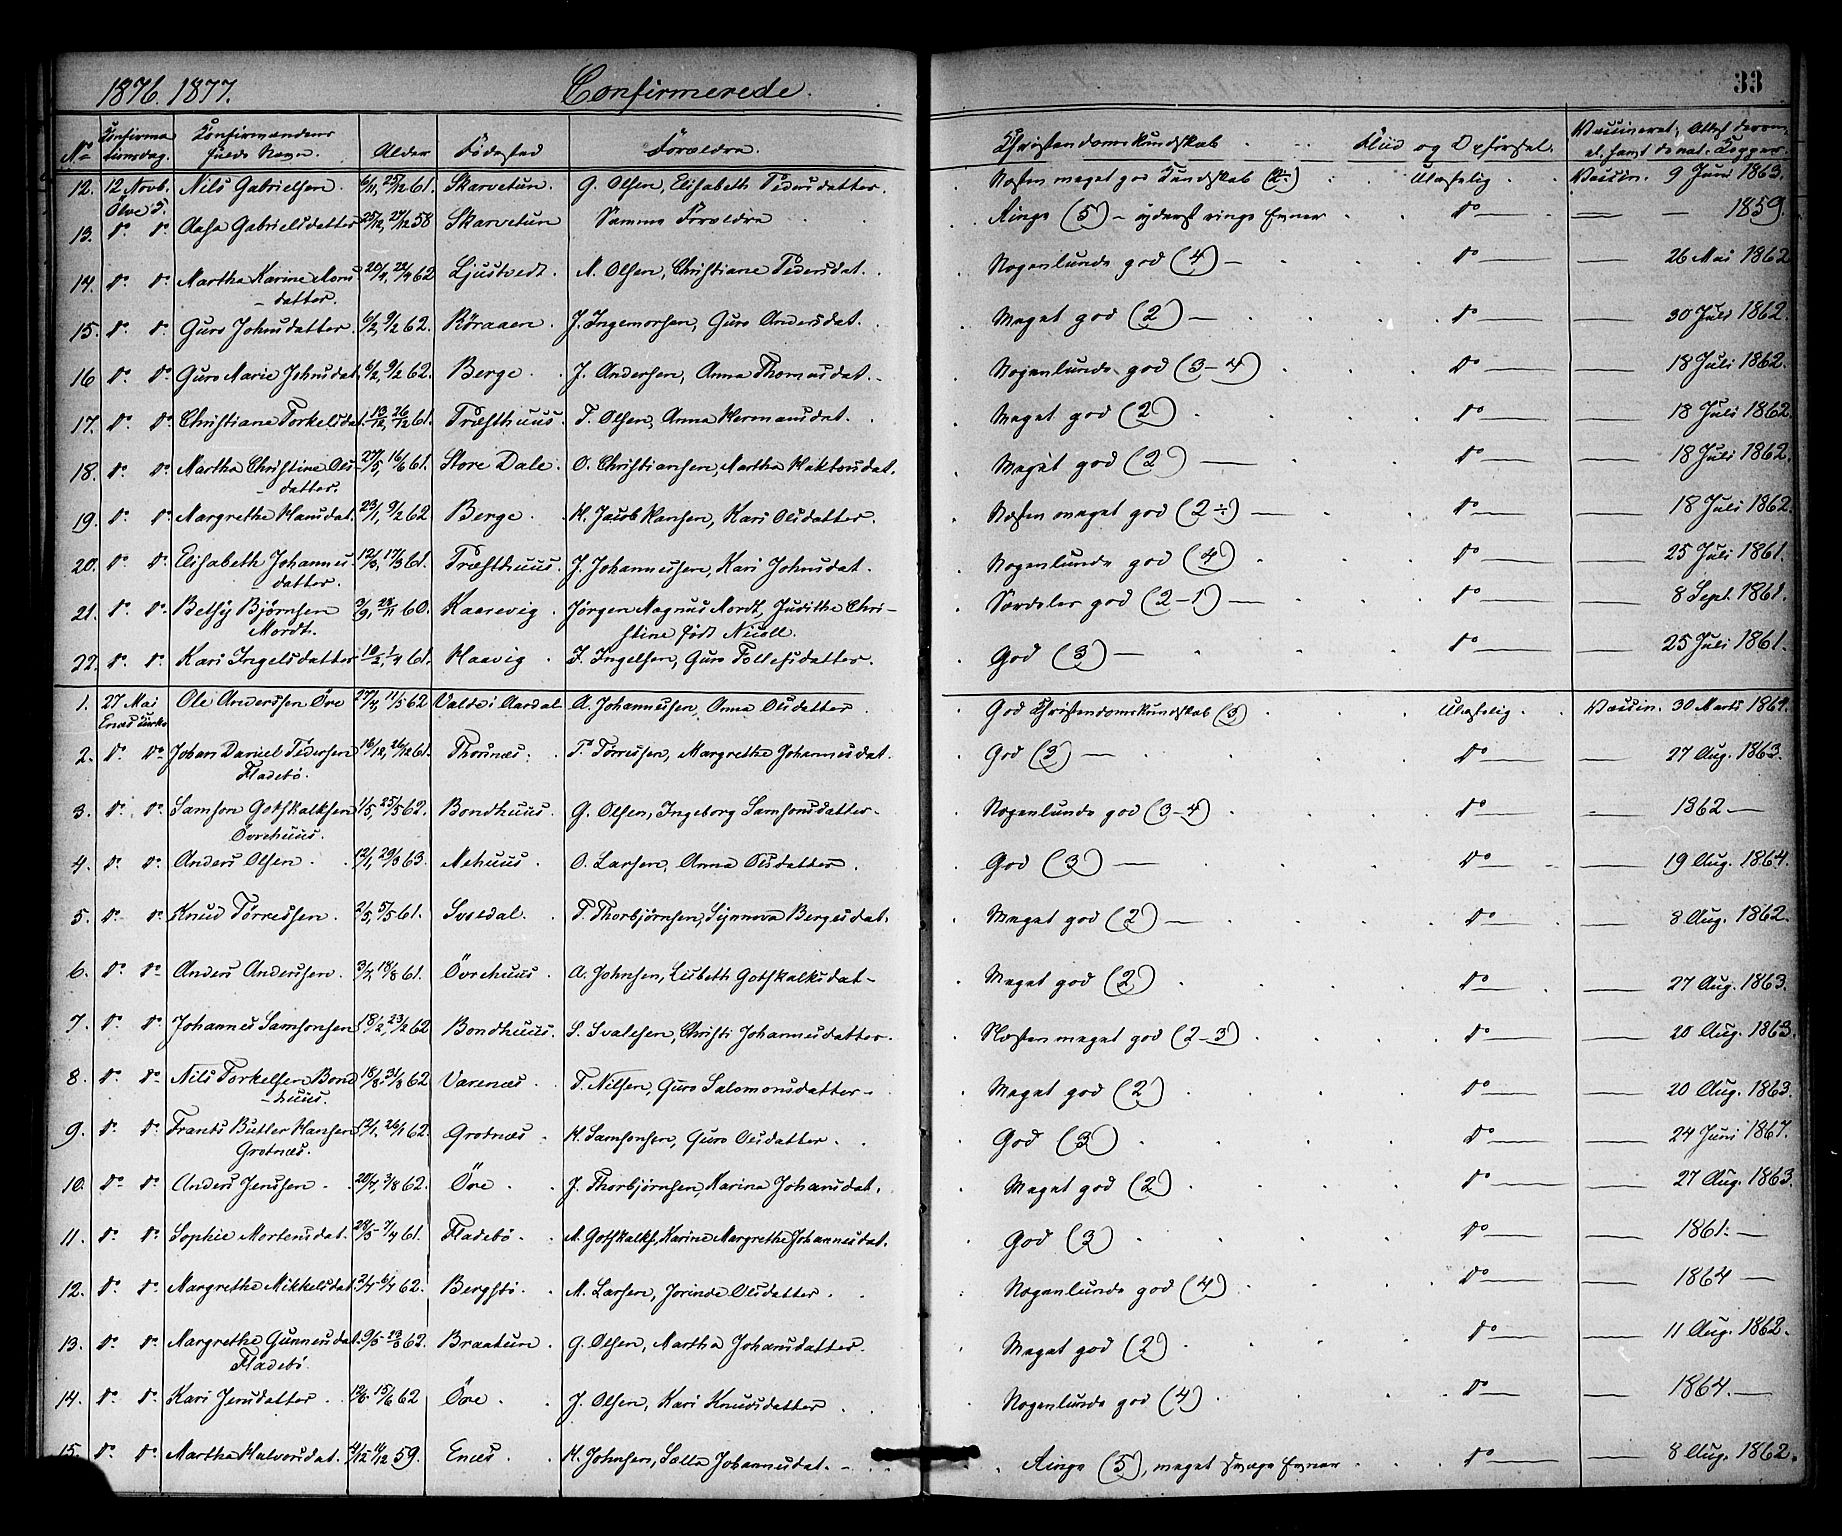 1876. 1877. Confirmerede. 33
No Konfirmationsdag. Konfirmandens fulde Navn. Alder Födested Forældre Christendomskundskab og Opförsel. Vaccineret, Attest derom,
12. 12 Novb. Nils Gabrielsen. 61. Skarvetun. G. Olsen, Elisabeth Pedersdatter. Næsten meget god Kundskab (2÷) Ulastelig Vaccin. 9 Juni 1863.
Ölve K.
13. do do Aasa Gabrielsdatter 25/12, 27/12 58 Skarvetun Samme Forældre Ringe (5) – yderst ringe Evner do — 1859.
14. do do Martha Karine Mons 20/4, 22/4 62 Ljustvedt. M. Olsen, Christiane Pedersdat. Nogenlunde god (4) — do — 26 Mai 1862
datter.
15. do do Guro Johnsdatter 6/2, 9/2 62. Röraaen. J. Ingemorsen, Guro Andersdat. Meget god (2) — do — 30 Juli 1862.
16 do do Guro Marie Johnsdat. 6/2, 9/2 62. Berge. J. Andersen, Anna Thomasdat. Nogenlunde god (3–4) do — 18 Juli 1862.
17. do do Christiane Torkelsdat. 13/12, 26/12 61. Træsthuus. T. Olsen, Anna Hermansdat. Meget god (2) do — 18 Juli 1862.
18. do do Martha Christine Ols 27/5, 16/6 61. Store Dale. O. Christiansen, Martha Haktorsdat. Meget god (2) — do — 18 Juli 1862.
datter.
19. do do Margrethe Hansdat. 23/1, 9/2 62 Berge. H. Jacob Hansen, Kari Olsdatter. Næsten meget god (2÷) — do — 18 Juli 1862.
20. do do Elisabeth Johannes 12/3, 17/3 61. Træsthuus. J. Johannessen, Kari Johnsdat. Nogenlunde god (4) do — 25 Juli 1861.
datter.
21. do do Betsy Björnsen 60. Kaarevig. Jörgen Magnus Mordt, Judithe Chri- Særdeles god (2–1) — do — 8 Sept. 1861.
Mordt. stine födt Nicoll.
22. do do Kari Ingelsdatter 61. Haavig. I. Ingelsen, Guro Tollefsdatter. God (3) — do — 25 Juli 1861.
1. 27 Mai Ole Anderssen Öre 27/4, 11/5 62 Valde i Aardal A. Johannessen, Anna Olsdatter. God Christendomskundskab (3) Ulastelig Vaccin. 30 Marts 1864.
Enæs Kirke
2. do do Johan Daniel Pedersen 16/12, 26/12 61. Thorsnæs. P. Torressen, Margrethe Johannesdat. God (3) — do — 27 Aug. 1863.
Fladebö.
3. do do Samson Gotskalksen 1/5, 25/5 62. Bondhuus. G. Olsen, Ingeborg Samsonsdatter. Nogenlunde god (3–4) do — 1862 —
Övrehuus.
4. do do Anders Olsen. 12/1, 29/3 63. Nehuus. O. Larsen, Anna Olsdatter. God (3) — do — 19 Aug. 1864.
5. do do Knud Törressen. 2/5, 5/5 61. Svoldal. T. Thorbjørnsen, Synnova Bergesdat. Meget god (2) — do — 8 Aug. 1862.
6. do do Anders Anderssen. 18/8 61. Övrehuus. A. Johnsen, Lisbeth Gotskalksdat. Meget god (2) do — 27 Aug. 1863.
7. do do Johannes Samsonsen 18/2, 23/2 62 Bondhuus. S. Svalesen, Christi Johannesdatter. Næsten meget god (2–3) do — 20 Aug. 1863.
8. do do Nils Torkelsen Bond 18/3, 31/3 62 Varenæs. T. Nilsen, Guro Salomonsdatter. Meget god (2) do — 20 Aug. 1863.
huus.
9. do do Frants Butler Hansen 12/1, 26/1 62. Grotnæs. H. Samsonsen, Guro Olsdatter. God (3) do — 24 Juni 1867.
Grotnæs.
10. do do Anders Jenssen. 3/8 62. Öre. J. Thorbjørnsen, Karina Johansdat. Meget god (2) do — 27 Aug. 1863.
11. do do Sophie Mortensdat. 61. Fladebö. M. Gotskalks, Karine Margrethe Johannesdat. God (3) do — 1861. —
12. do do Margrethe Mikkelsdat. 2/4 6/4 62. Bergstö. M. Larsen, Jorinde Olsdatter. Nogenlunde god (4) do — 1864 —
13. do do Margrethe Gunnesdat. 62. Braatun. G. Olsen, Martha Johansdatter. Meget god (2) do — 11 Aug. 1862.
Fladebö.
14. do do Kari Jensdatter. 12/6 15/6 62 Öre. J. Olsen, Kari Knudsdatter. Nogenlunde god (4) do — 1864. —
15. do do Martha Halvorsdat. 59. Enæs. H. Johnsen, Johannesdat. Ringe (5), meget svage Evner do — 8 Aug. 1862.